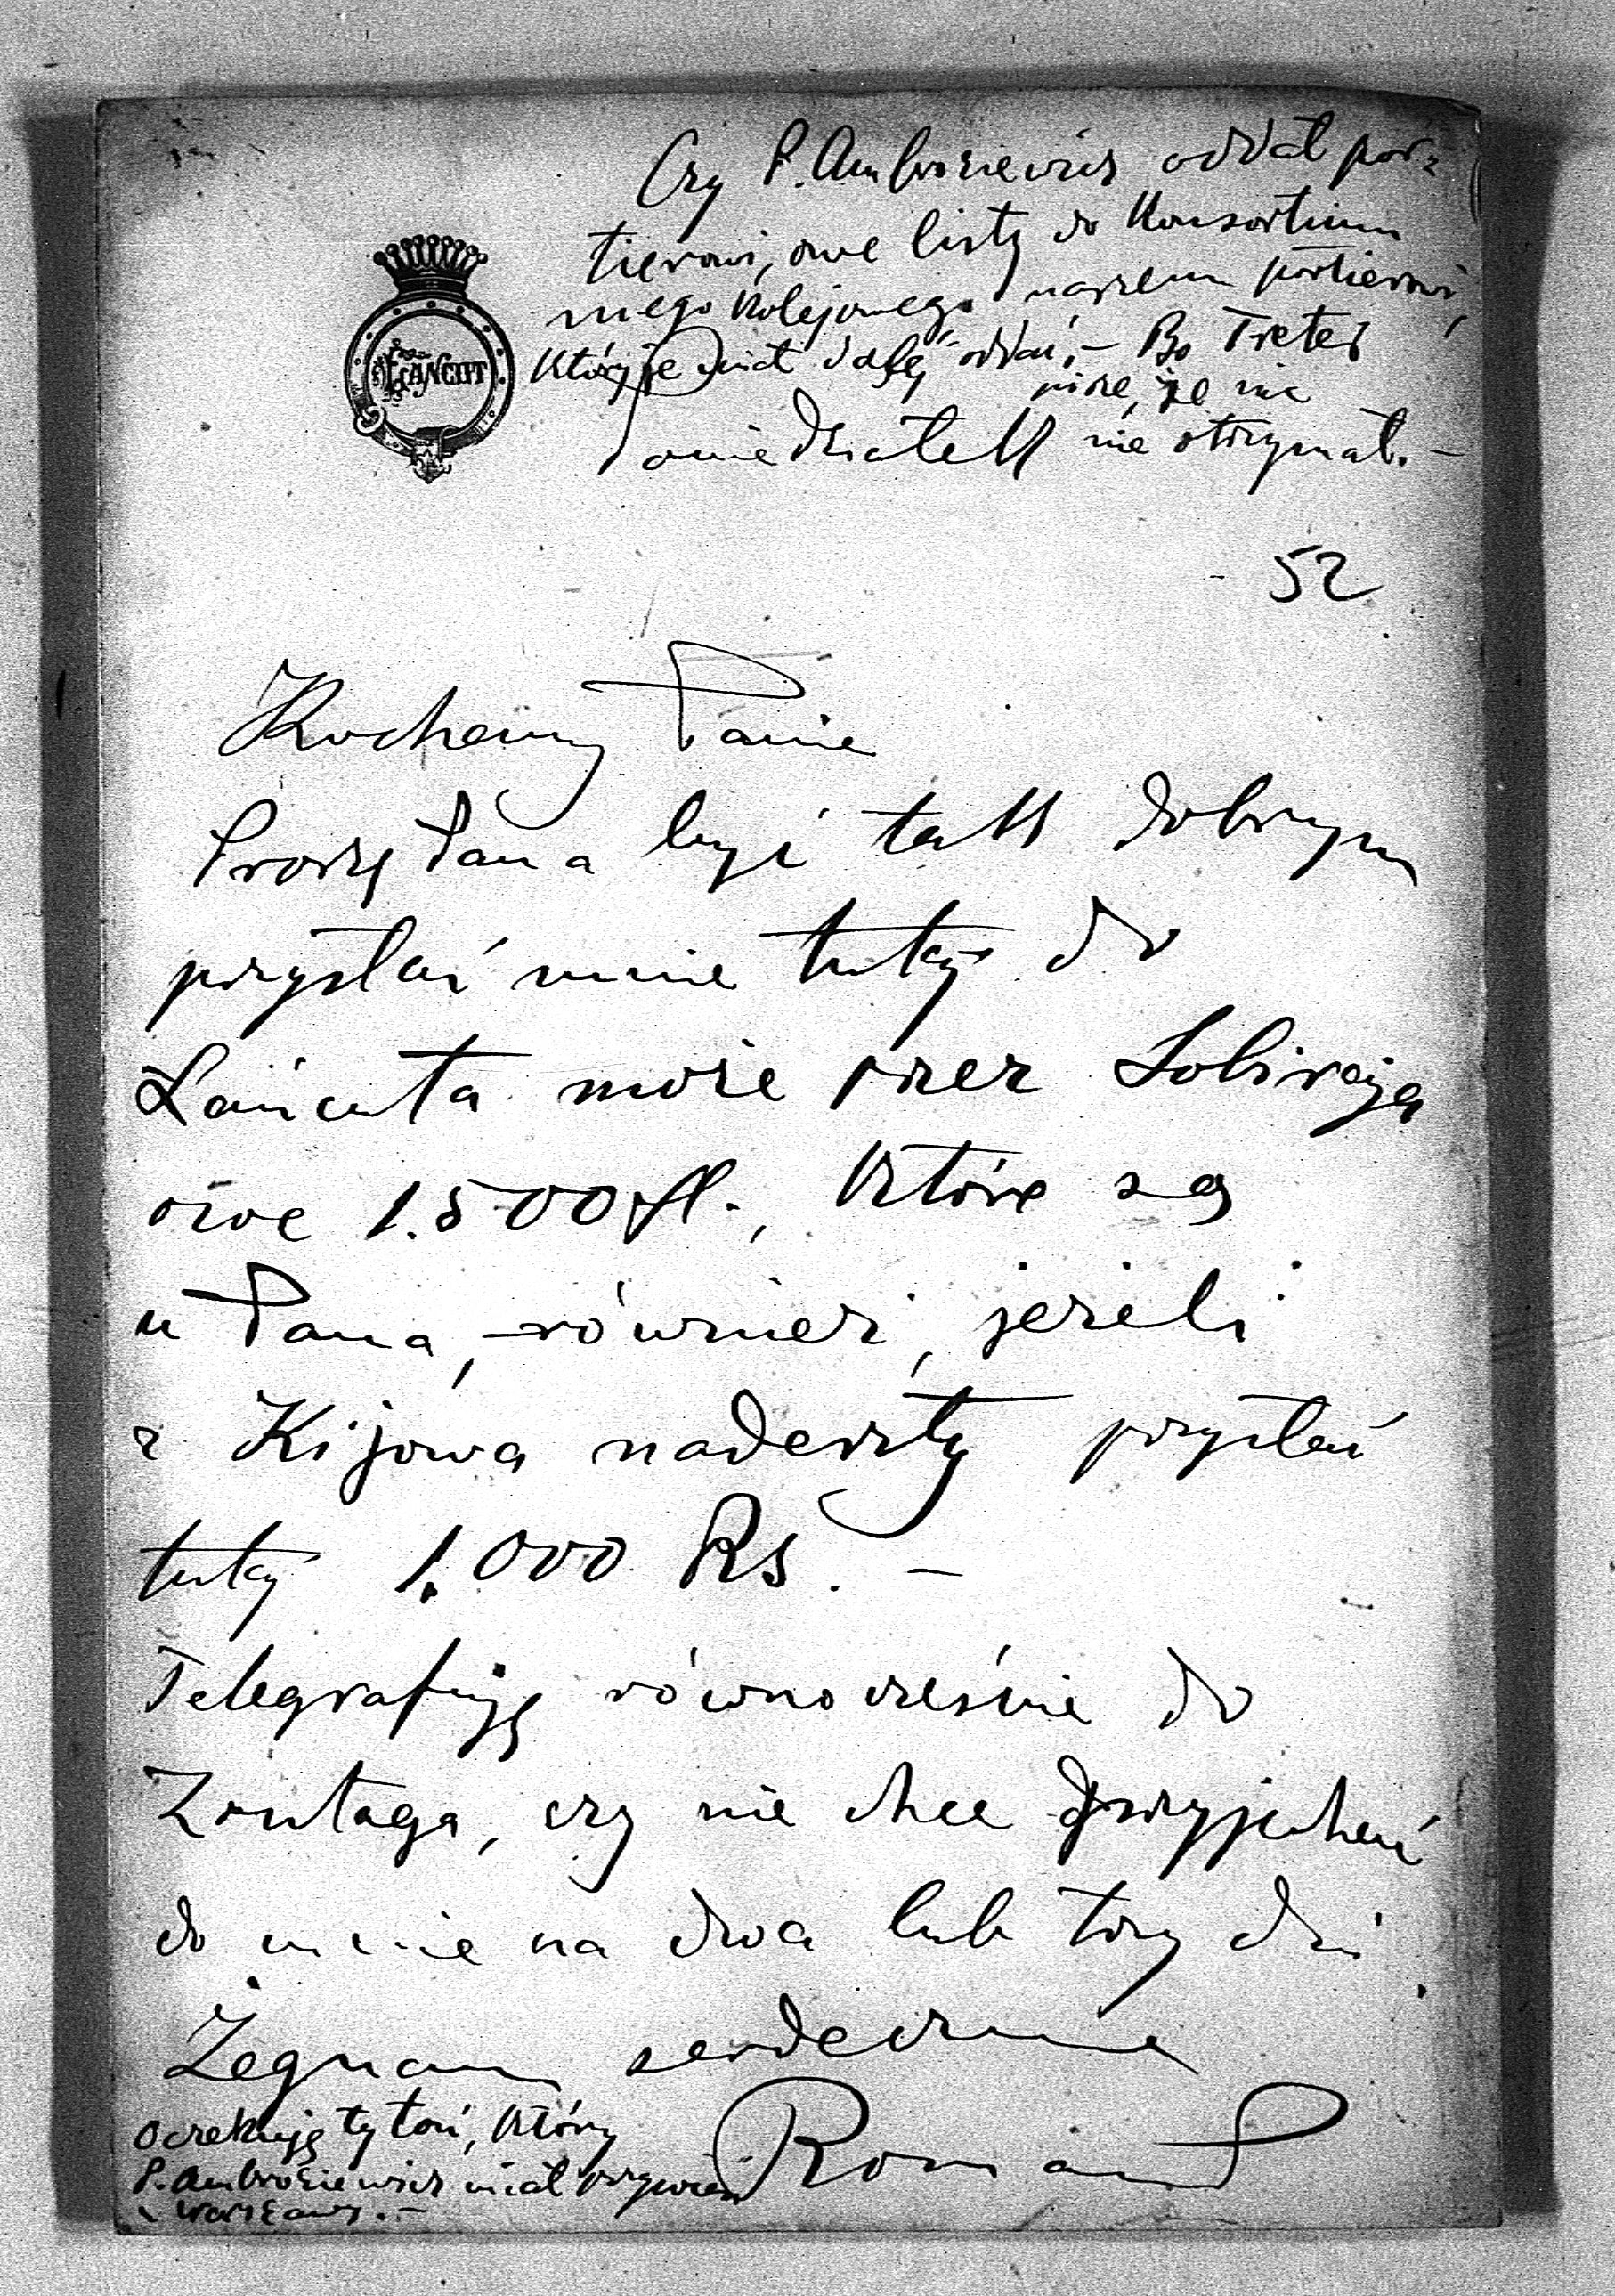 Czy P. Ambroziewicz oddał por=
tierowi, owe listy do Konsortium
mego kolejowego naszem portierowi,
który je miał dalej oddać, – Bo Treter
pisze, że nic
nie otrzymał. –
Poniedziałek
ŁAŃCUT
52
Kochany Panie
Proszę Pana być tak dobrym
przysłać mnie tutaj do
Łańcuta może przez Sobiraja
owe 1.500 fl., które są
u Pana, również, jeżeli
z Kijowa nadeszły przysłać
tutaj 1.000 Rs. –
Telegrafuję równocześnie do
Zontaga, czy nie chce przyjechać
do mnie na dwa lub trzy dni.
Żegnam serdecznie
Roman P
Oczekuję tytoń, który
P. Ambroziewicz miał przywieść
z Warszawy. –